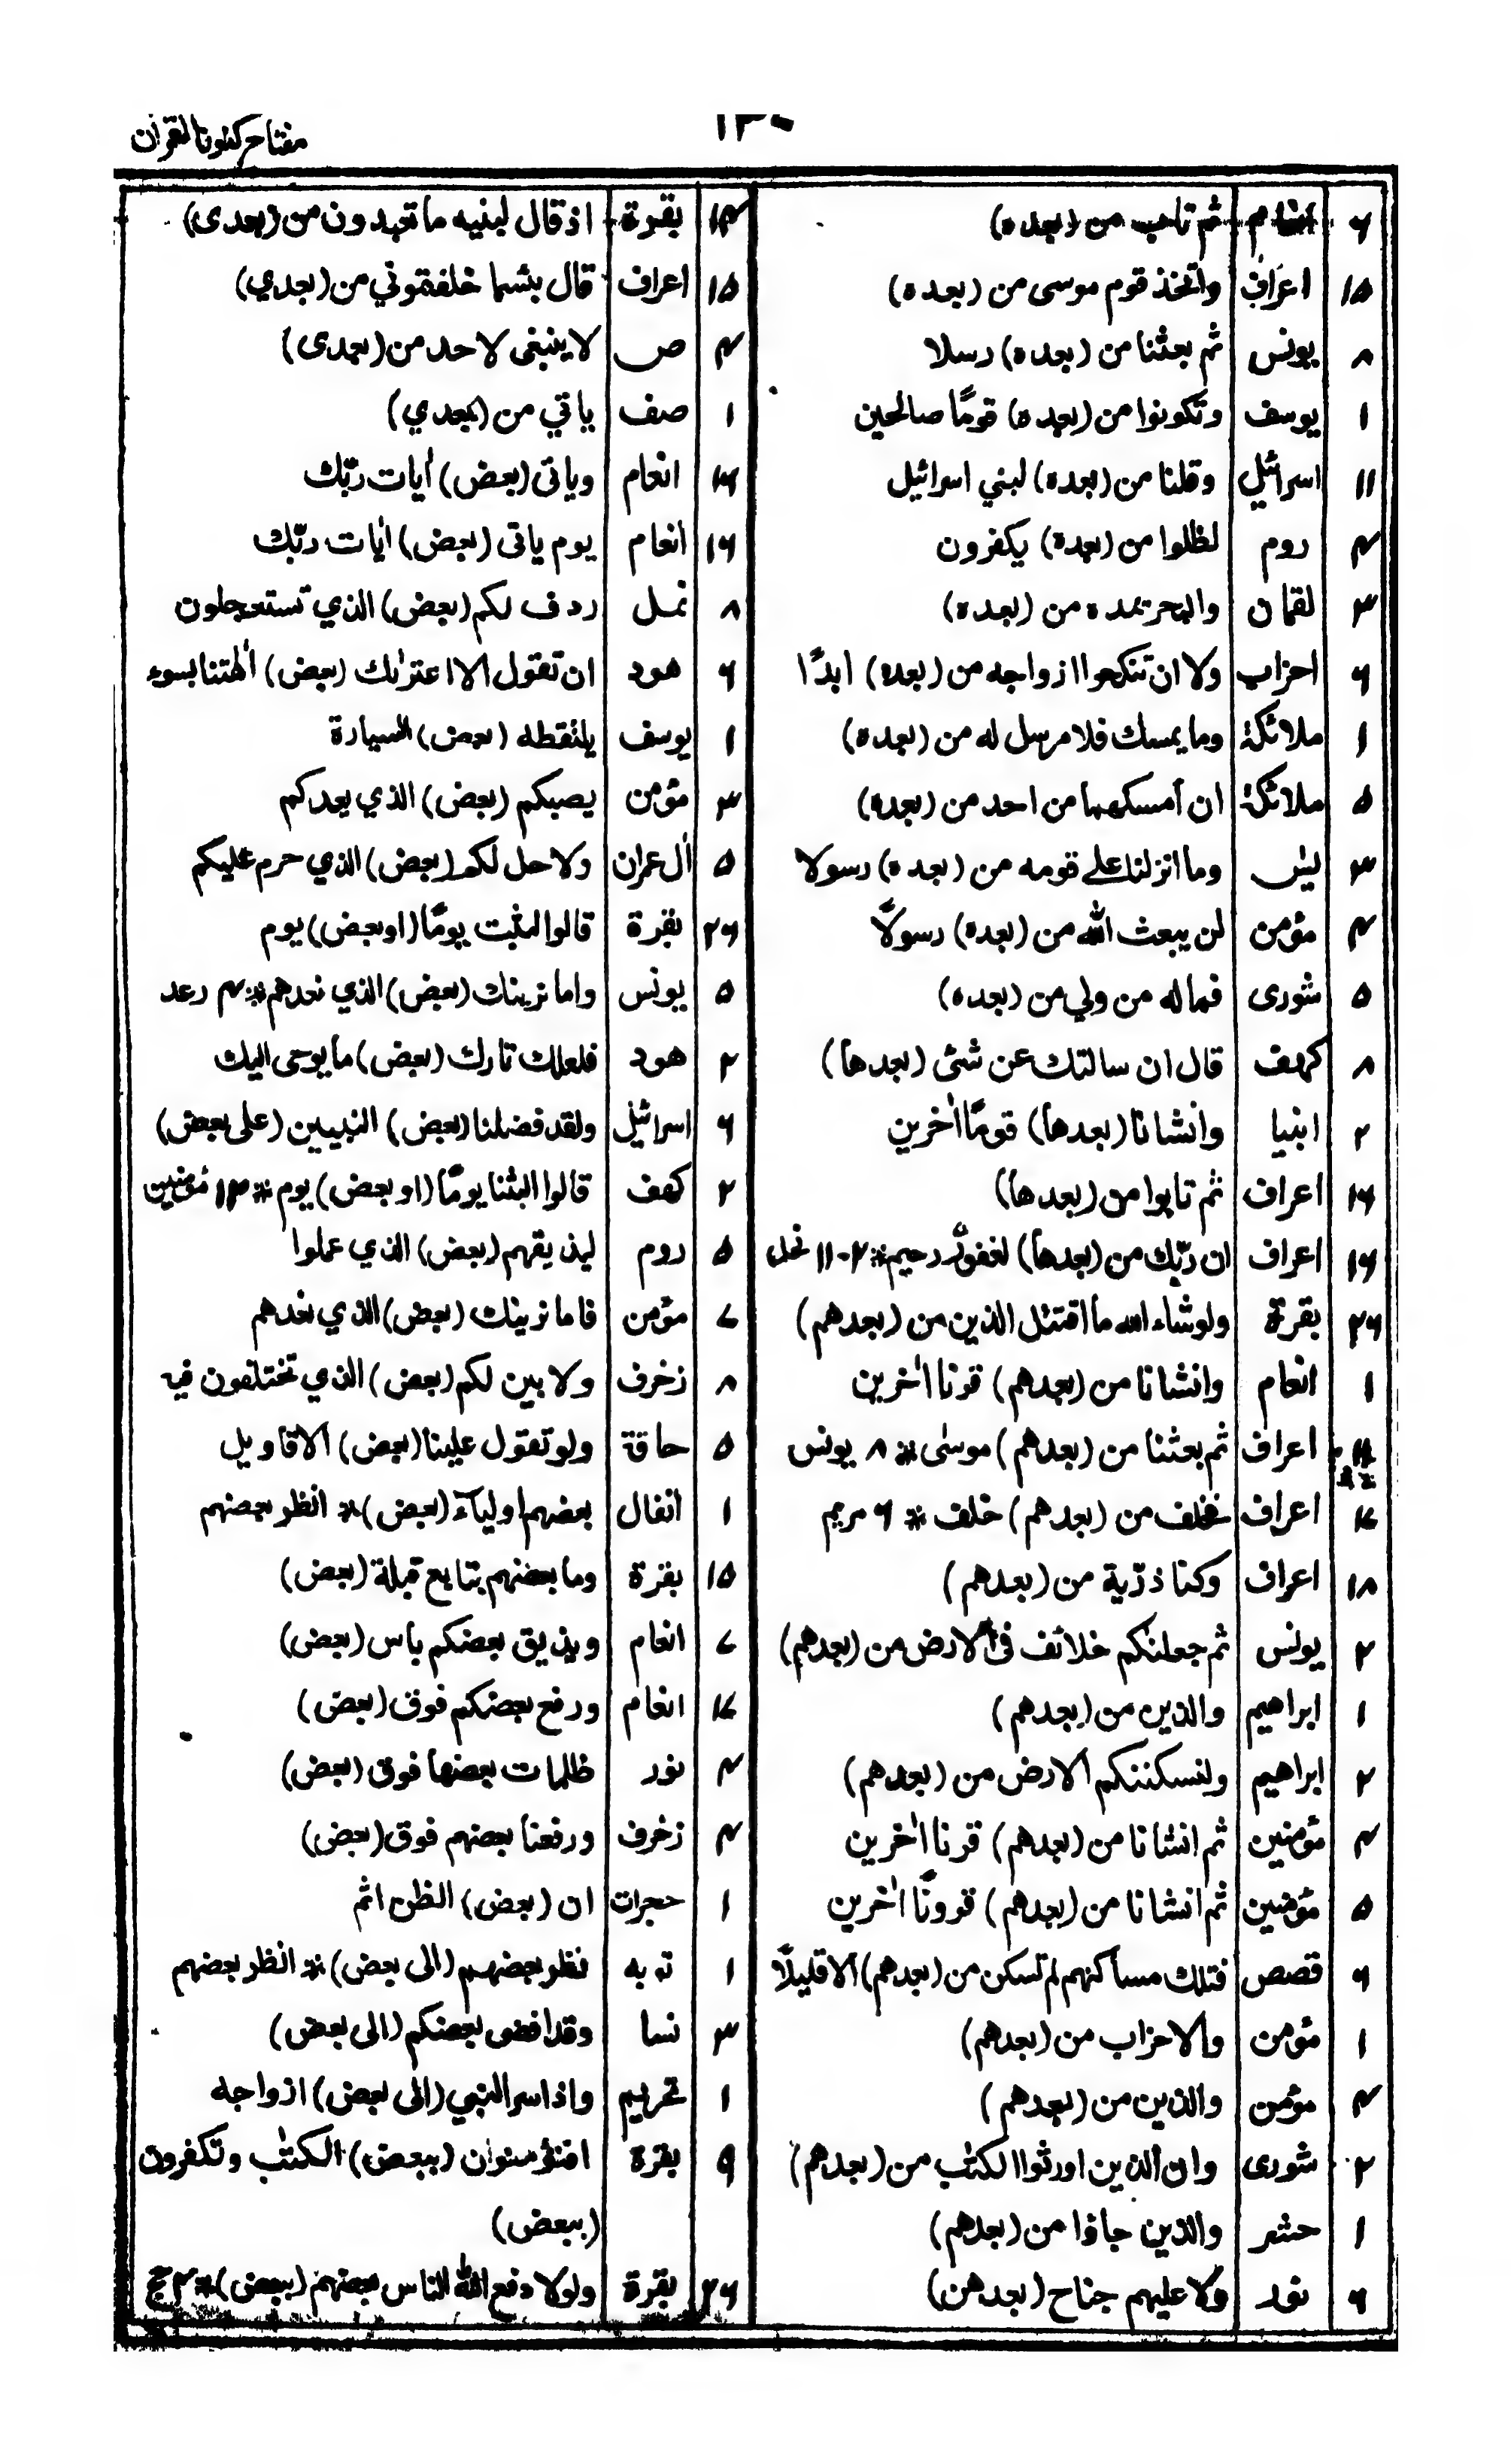 مفتاح کنوز القران
۱۳۰
۶ انعام ثم تاب من (بعده)
۱۵ اعراف واتخذ قوم موسى من (بعده)
۸ يونس ثم بعثنا من (بعده) رسلا
۱ يوسف وتكونوا من (بعده) قومًا صالحين
۱۱ اسرائيل وقلنا من (بعده) لبني اسرائيل
۴ روم لظلوا من (بعدة) يكفرون
۳ لقمان والبحر يمده من (بعده)
۶ احزاب ولا ان تنكحوا ازواجه من (بعده) ابدًا
۱ ملائكة وما يمسك فلا مرسل له من (بعده)
۵ ملائكة ان أمسكهما من احد من (بعده)
۲ يٰس وما انزلنا على قومه من (بعده) رسولا
۴ مؤمن لن يبعث الله من (بعده) رسولًا
۵ شورى فما له من ولي من (بعده)
۸ كهف قال ان سالتك عن شئ (بعدها)
۲ انبيا وانشانا (بعدها) قومًا اٰخرين
۱۶ اعراف ثم تابوا من (بعدها)
۱۶ اعراف ان ربّك من (بعدها) لغفورٌ رحيم * ۲-۱۱ نحل
۲۶ بقرة ولو شاء الله ما اقتتل الذين من (بعدهم)
۱ انعام وانشانا من (بعدهم) قرنا اٰخرين
اعراف ثم بعثنا من (بعدهم) موسىٰ * ۸ يونس
۱۷ اعراف فخلف من (بعدهم) خلف * ۶ مريم
۱۸ اعراف وكنا ذرّية من (بعدهم)
۲ يونس ثم جعلنٰكم خلائف فى الارض من (بعدهم)
۱ ابراهيم والذين من (بعدهم)
۲ ابراهيم ولنسكننكم الارض من (بعدهم)
۴ مؤمنين ثم انشانا من (بعدهم) قرنا اٰخرين
۵ مؤمنين ثم انشانا من (بعدهم) قرونًا اٰخرين
۶ قصص فتلك مساكنهم لم تسكن من (بعدهم) الا قليلًا
۱ مؤمن والاحزاب من (بعدهم)
۴ مؤمن والذين من (بعدهم)
۲ شورى وان الذين اورثوا الكتٰب من (بعدهم)
۱ حشر والذين جاؤا من (بعدهم)
۶ نور ولا عليهم جناح (بعدهن)
۱۴ بقرة اذ قال لبنيه ما تعبدون من (بعدى)
۱۵ اعراف قال بئسما خلفتموني من (بعدي)
۴ ص لا ينبغى لاحد من (بعدى)
۱ صف ياتي من (بعدي)
۱۶ انعام وياتى (بعض) أيات ربّك
۱۶ انعام يوم ياتى (بعض) اٰيات ربّك
۸ نمل ردف لكم (بعض) الذي تستعجلون
۶ هود ان تقول الا اعترٰىك (بعض) اٰلهتنا بسوء
۱ يوسف يلتقطه (بعض) السيارة
۳ مؤمن يصبكم (بعض) الذي يعدكم
۵ اٰل عمران ولاحل لكم (بعض) الذي حرم عليكم
۲۶ بقرة قالوا لبثت يومًا (او بعض) يوم
۵ يونس واما نرينك (بعض) الذي نعدهم * ۴ رعد
۲ هود فلعلك تارك (بعض) ما يوحى اليك
۶ اسرائيل ولقد فضلنا (بعض) النبيين (على بعض)
۲ كهف قالوا البثنا يومًا (او بعض) يوم * مؤمنين
۵ روم ليذيقهم (بعض) الذي عملوا
۷ مؤمن فاما نرينك (بعض) الذي نعدهم
۸ زخرف ولابين لكم (بعض) الذي تختلفون فيه
۵ حاقة ولو تقول علينا (بعض) الاقاويل
۱ انفال بعضهم اولياء (بعض) * انظر بعضهم
۱۵ بقرة وما بعضهم بتابع قبلة (بعض)
۷ انعام ويذيق بعضكم باس (بعض)
۱۷ انعام ورفع بعضكم فوق (بعض)
۴ نور ظلمات بعضها فوق (بعض)
۴ زخرف ورفعنا بعضهم فوق (بعض)
۱ حجرات ان (بعض) الظن اثم
۱ توبه نظر بعضهم (الى بعض) * انظر بعضهم
۳ نسا وقد افضى بعضكم (الى بعض)
۱ تحريم واذ اسر النبي (الى بعض) ازواجه
۹ بقرة افتؤمنوان (ببعض) الكتٰب وتكفرون
(ببعض)
۲۶ بقرة ولولا دفع الله الناس بعضهم (ببعض) * حج